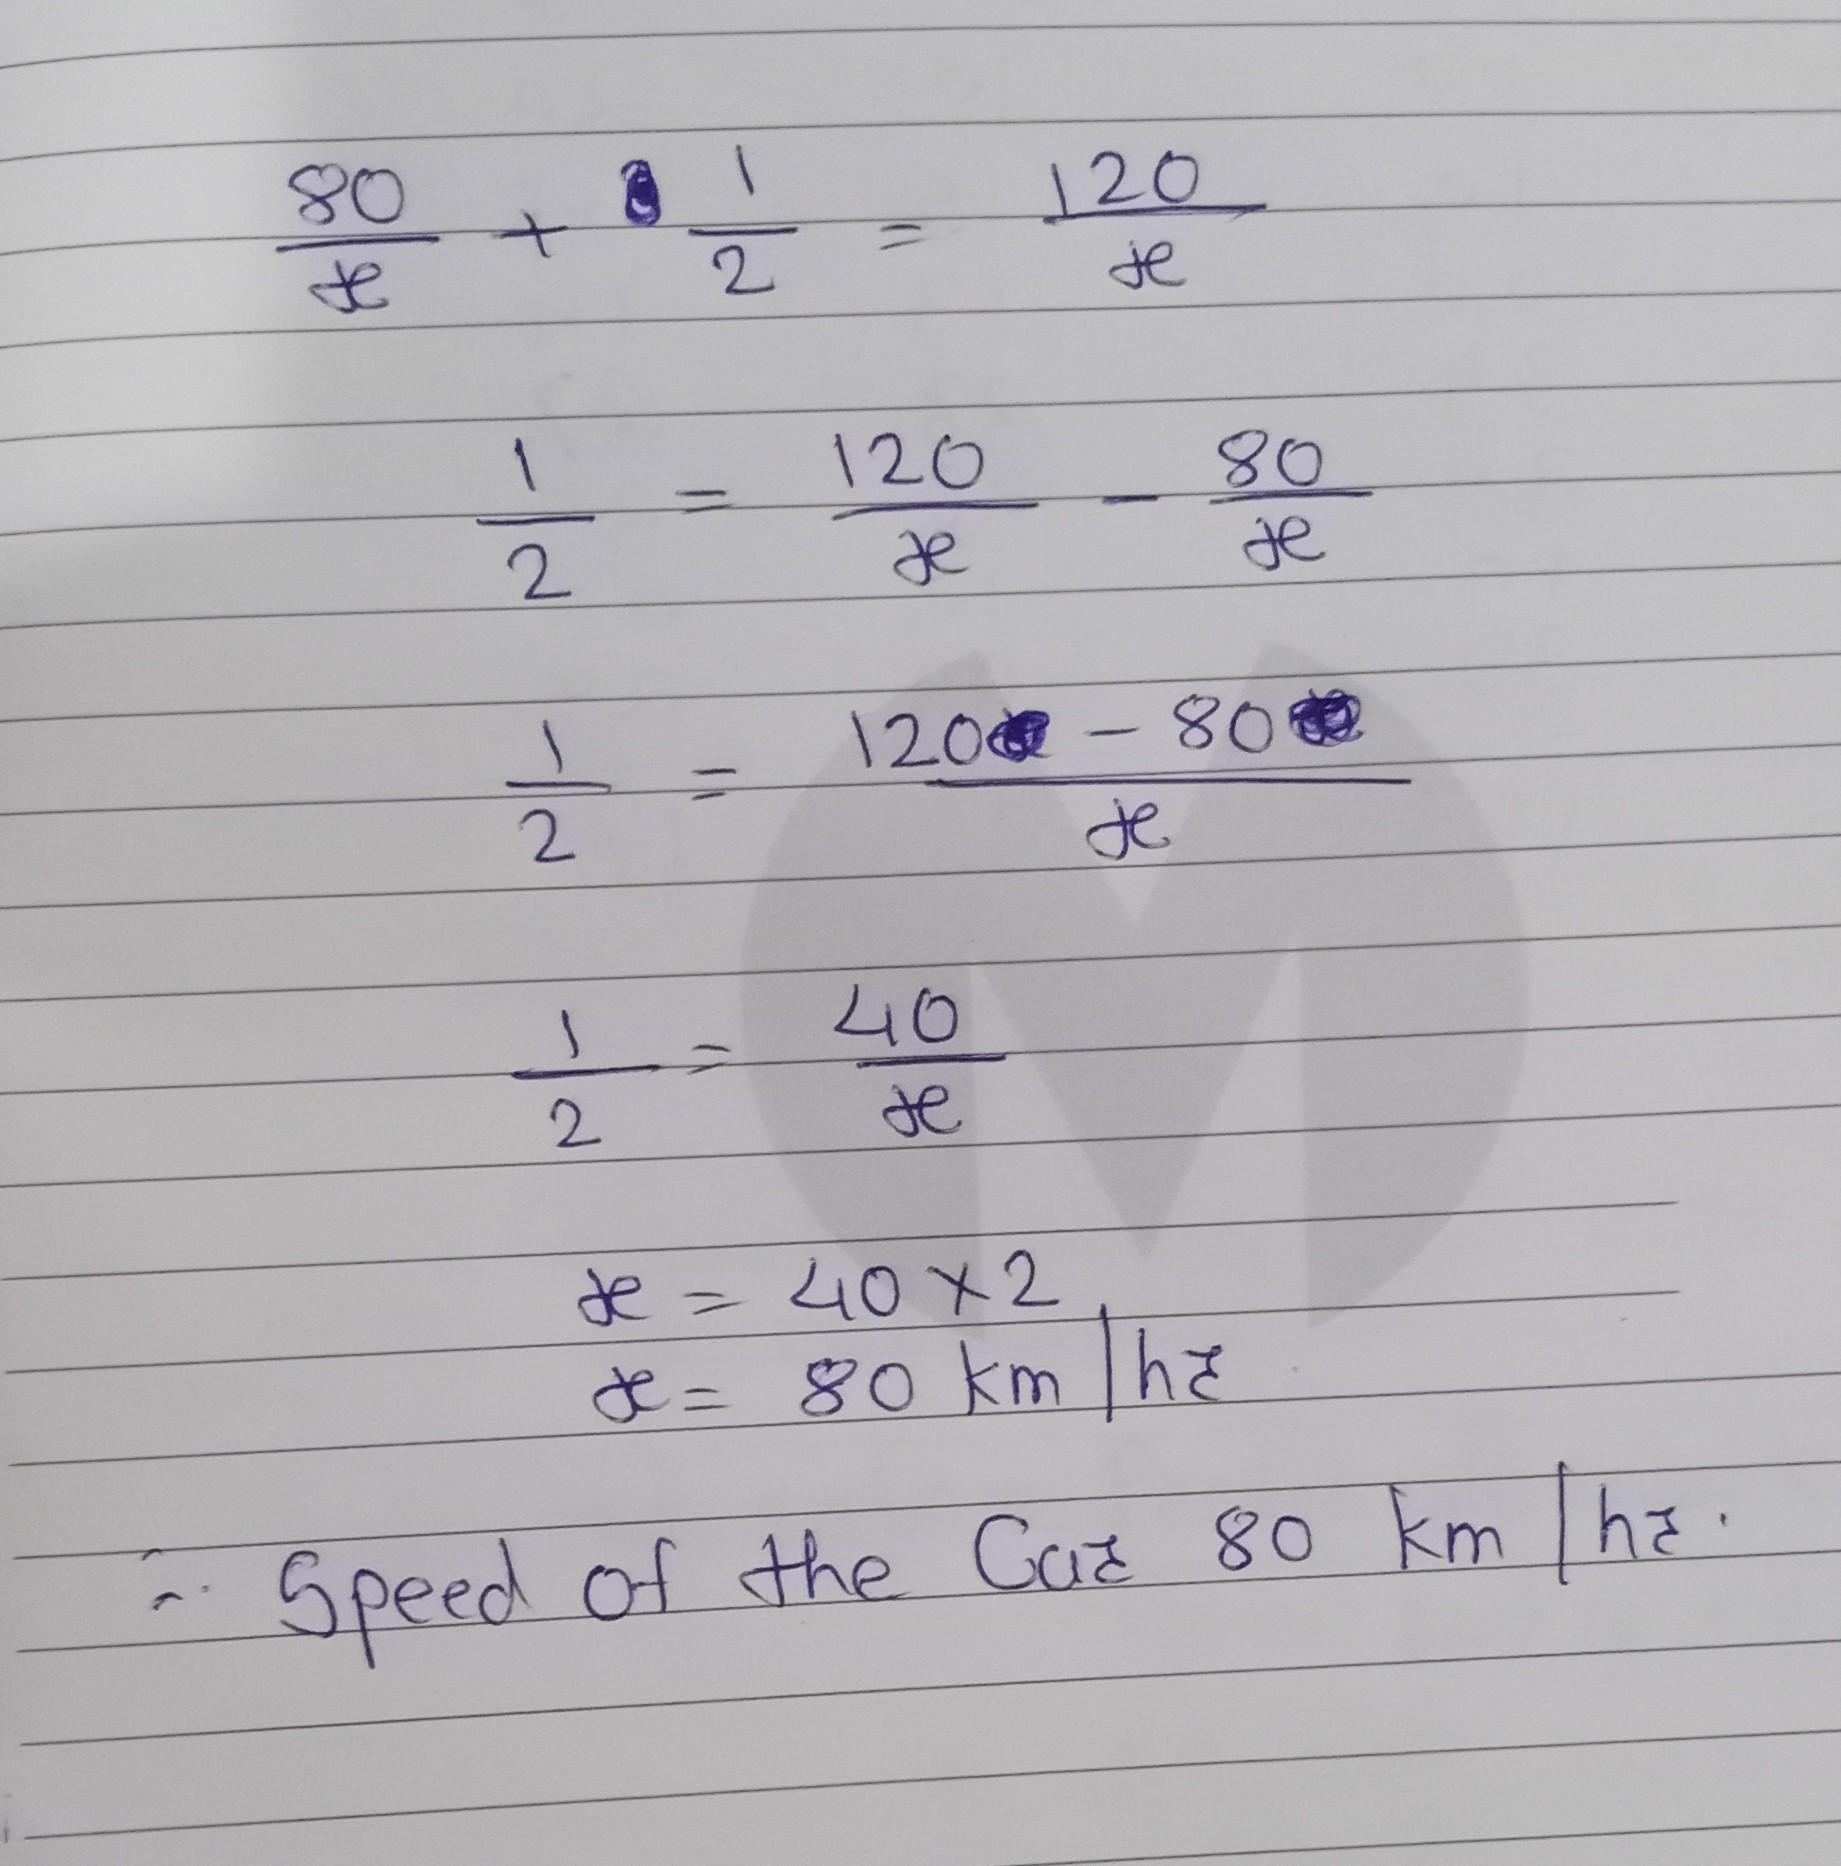 80/x + 1/2 = 120/x
1/2 = 120/x - 80/x
1/2 = 120 - 80/x
1/2 = 40/x
x = 40 × 2
x = 80 km/hr
∴ Speed of the Car 80 km/hr.